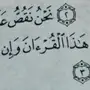 ٢ نَحْنُ نَقُصُّ
هَٰذَا ٱلْقُرْءَانَ وَإِن
٣